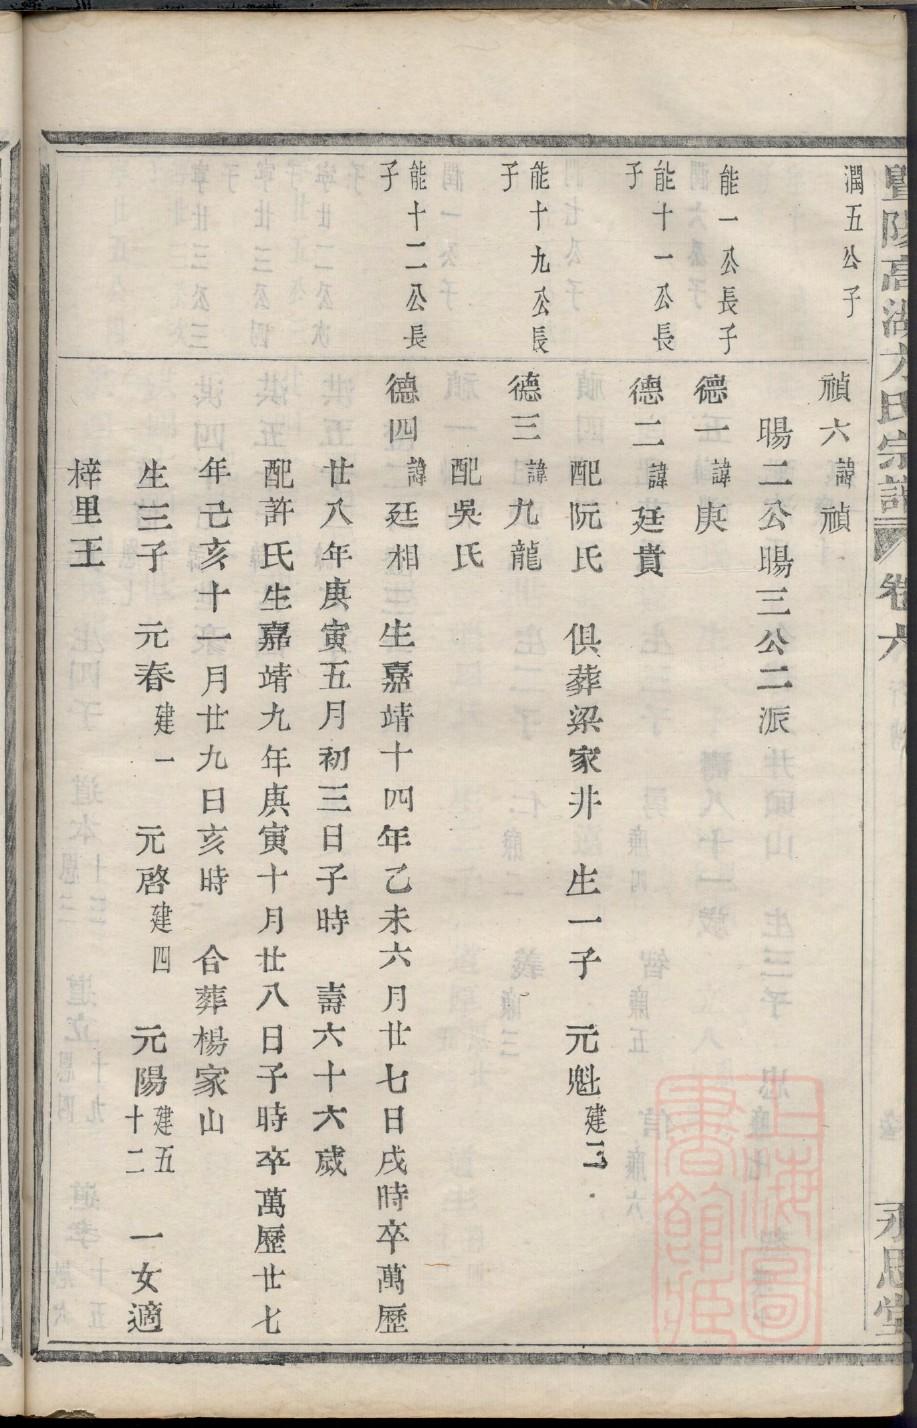 暨陽高湖方氏宗譜 卷六 永思堂
潤五公子
禎六 諱禎
暘二公暘三公二派
能一公長子
德一 諱庚
能十一公長子
德二 諱廷貴
配阮氏 俱葬梁家井 生一子 元魁 建二
能十九公長子
德三 諱九龍
配吳氏
能十二公長子
德四 諱廷相 生嘉靖十四年乙未六月廿七日戌時卒萬歷
廿八年庚寅五月初三日子時 壽六十六歲
配許氏生嘉靖九年庚寅十月廿八日子時卒萬歷廿七
年己亥十一月廿九日亥時 合葬楊家山
生三子 元春 建一 元啓 建四 元陽 建五十二 一女適
梓里王
上海圖書館藏